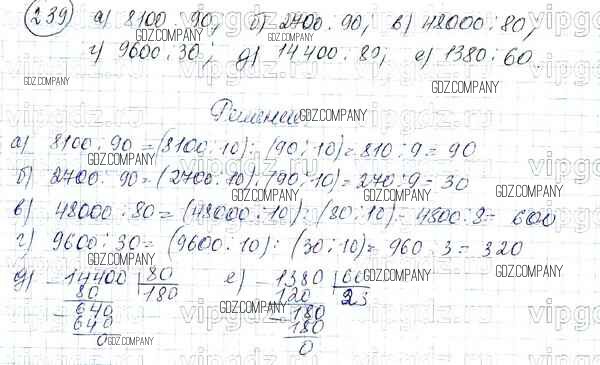 239 а) 8100 : 90, б) 2700 : 90, в) 48000 : 80,
г) 9600 : 30; д) 14400 : 80, е) 1380 : 60.
Решение
а) 8100 : 90 = (8100 : 10) : (90 : 10) = 810 : 9 = 90
б) 2700 : 90 = (2700 : 10) : (90 : 10) = 270 : 9 = 30
в) 48000 : 80 = (48000 : 10) : (80 : 10) = 4800 : 8 = 600
г) 9600 : 30 = (9600 : 10) : (30 : 10) = 960 : 3 = 320
д) - 14400 | 80 е) - 1380 | 60
80 180 120 23
- 640 - 180
640 180
0 0